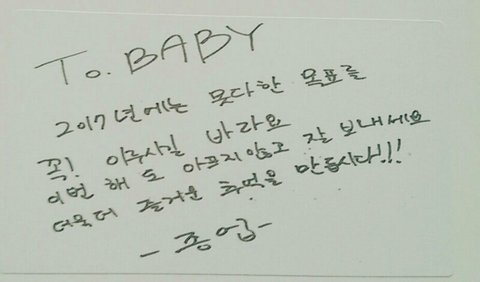 To. BABY
2017년에는 못다한 목표를
꼭! 이루시길 바라요
이번 해도 아프지않고 잘 보내세요
더욱더 즐거운 추억을 만듭시다!!!
- 종업 -